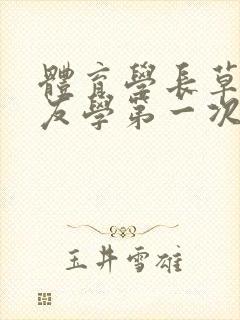 體育學長草
友學第一次
玉井雪雄